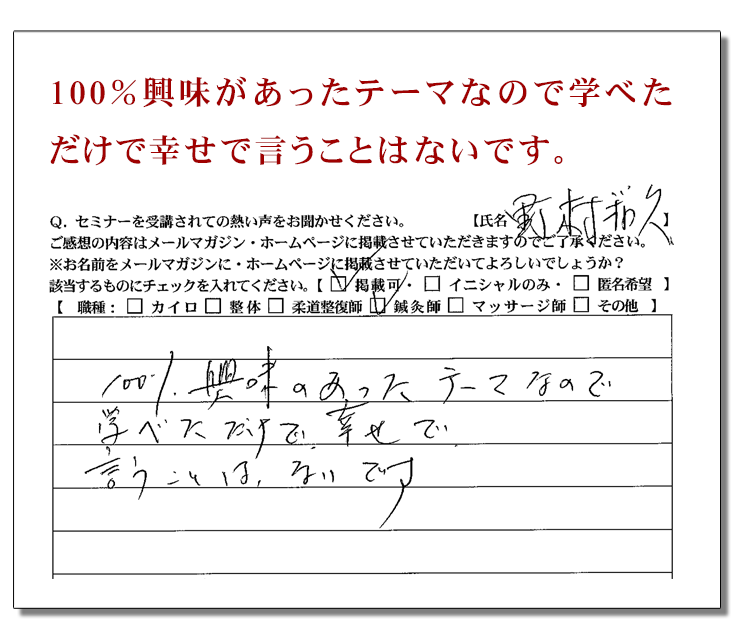 100%興味があったテーマなので学べた
だけで幸せで言うことはないです。
Q. セミナーを受講されての熱い声をお聞かせください。 【氏名 野村拓久】
ご感想の内容はメールマガジン・ホームページに掲載させていただきますのでご了承ください。
※お名前をメールマガジンに・ホームページに掲載させていただいてよろしいでしょうか？
該当するものにチェックを入れてください。【 ☑ 掲載可・ □ イニシャルのみ・ □ 匿名希望 】
【 職種： □ カイロ □ 整体 □ 柔道整復師 ☑ 鍼灸師 □ マッサージ師 □ その他 】
100%興味のあったテーマなので
学べただけで、幸せで、
言うことは、ないです